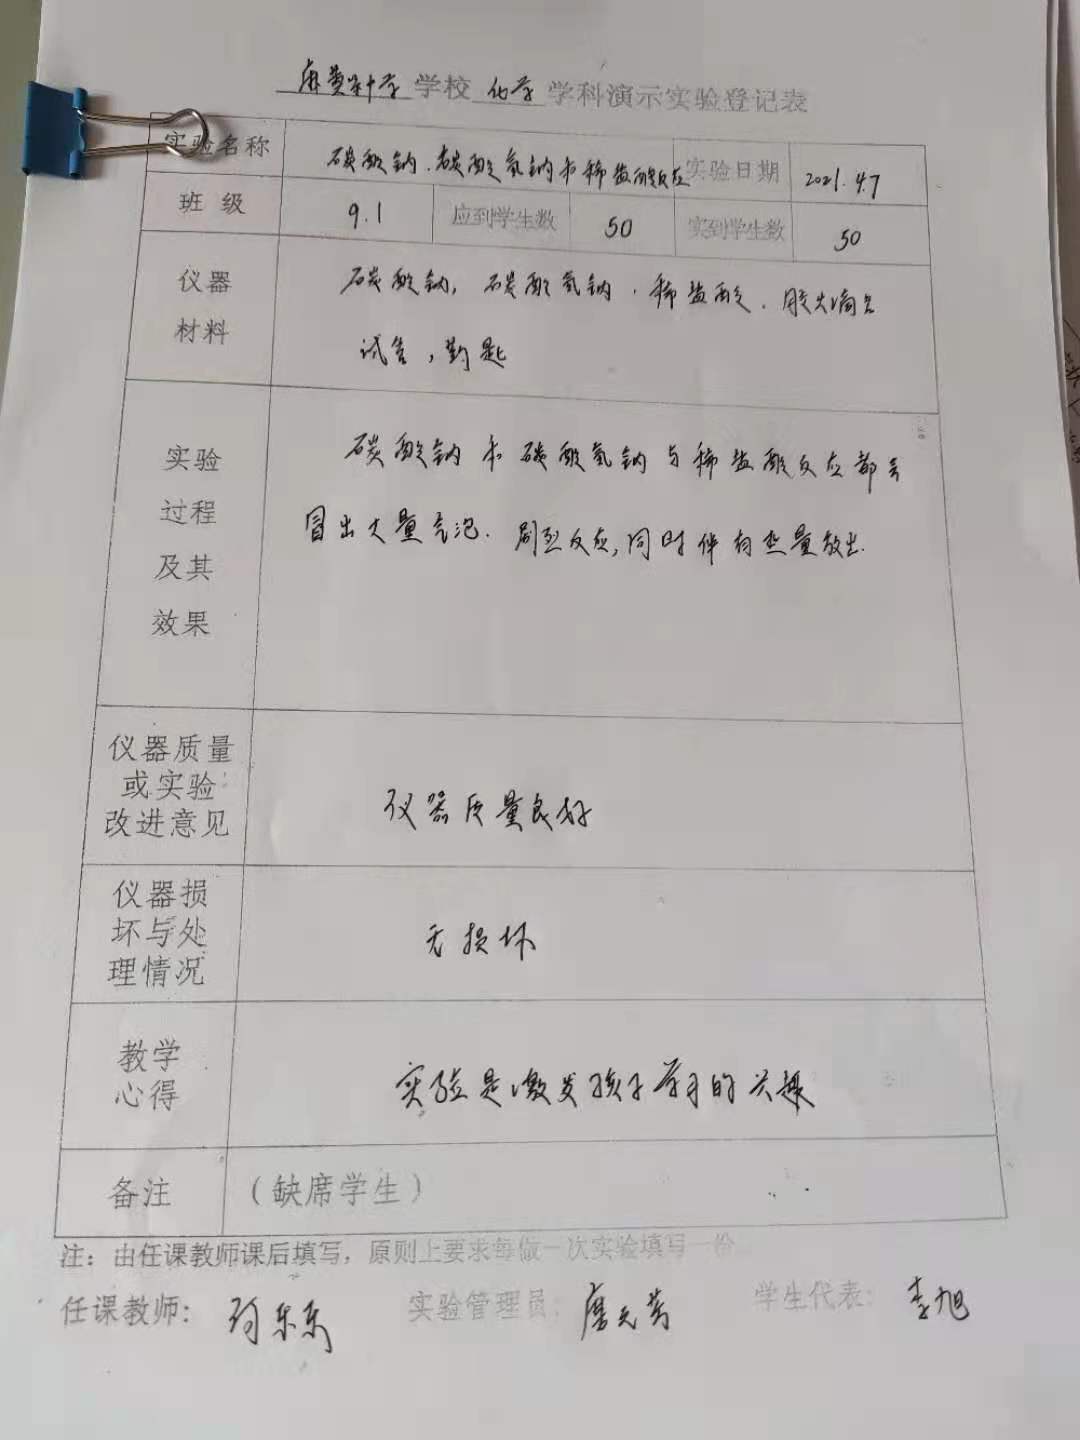 麻黄梁中学 学校 化学 学科演示实验登记表
实验名称 碳酸钠、碳酸氢钠和稀盐酸反应 实验日期 2021.4.7
班 级 9.1 应到学生数 50 实到学生数 50
仪器 材料
碳酸钠，碳酸氢钠、稀盐酸、胶头滴管
试管，药匙
实验 过程 及其 效果
碳酸钠和碳酸氢钠与稀盐酸反应都会
冒出大量气泡. 剧烈反应,同时伴有热量放出.
仪器质量
或实验
改进意见
仪器质量良好
仪器损
坏与处
理情况
无损坏
教学
心得
实验是激发孩子学习的兴趣
备注 （缺席学生）
注：由任课教师课后填写，原则上要求每做一次实验填写一份
任课教师： 东东 实验管理员： 学生代表： 李旭